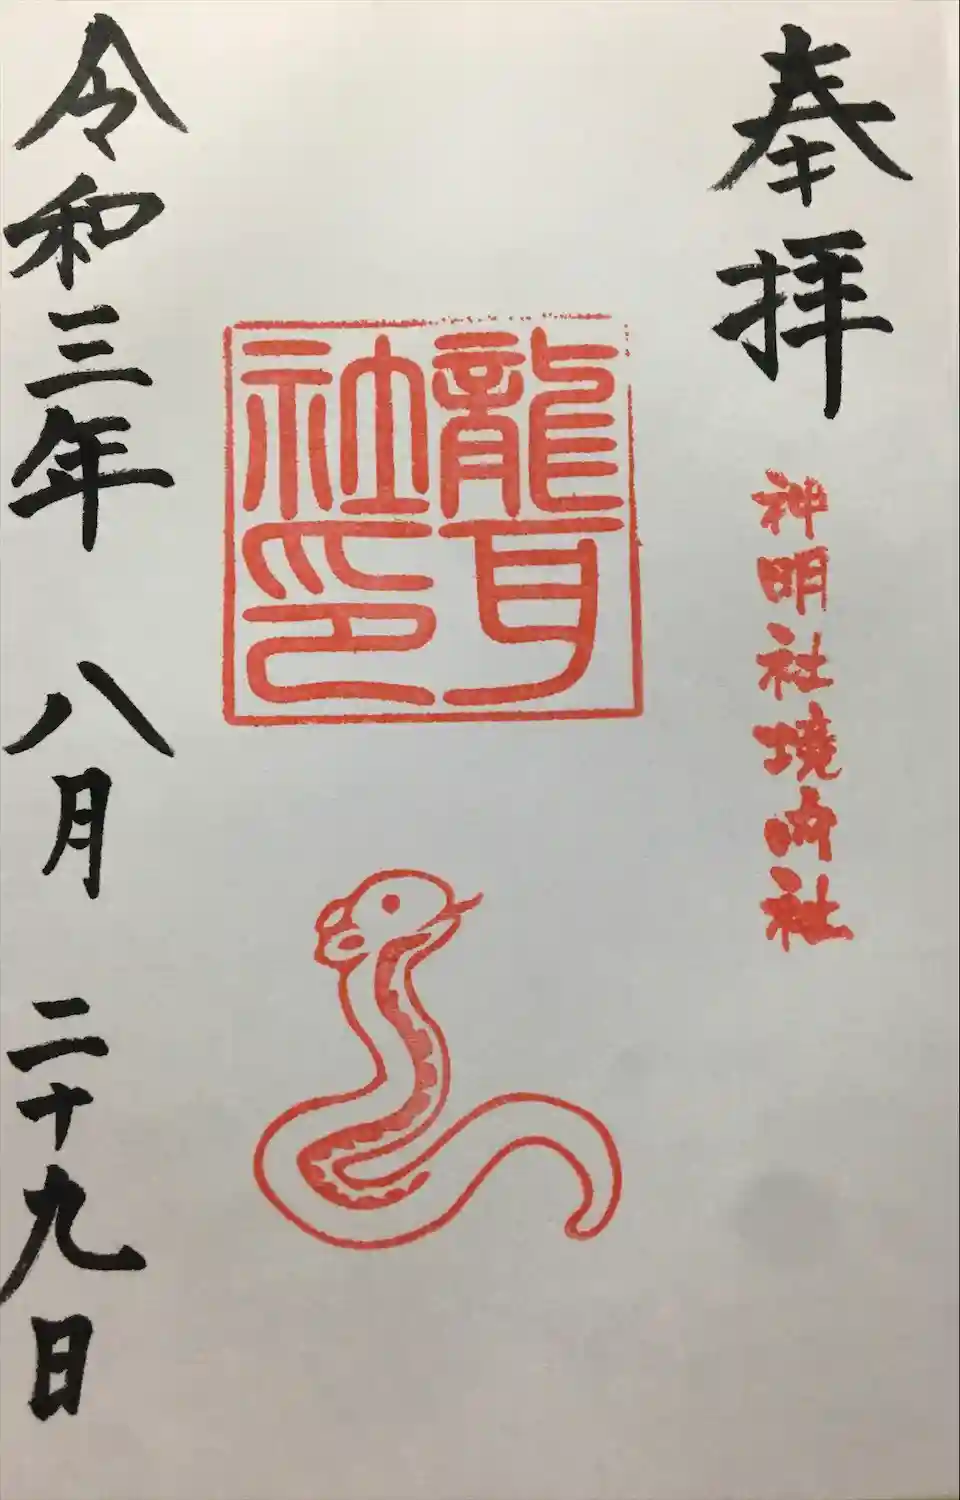 奉拝
神明社境内社
龍耳社印
令和三年 八月 二十九日